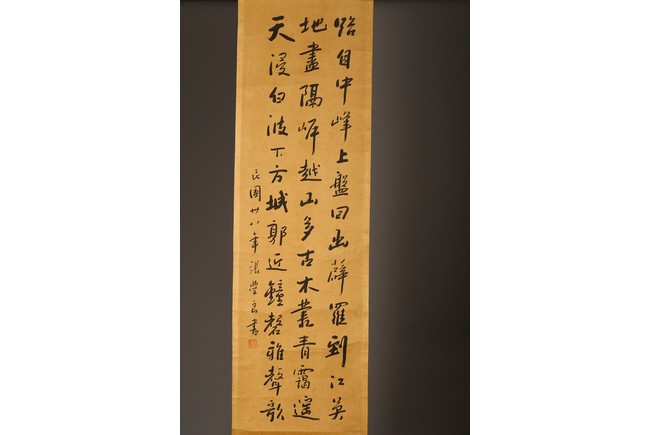 路自中峰上盤回出薜羅到江吳
地盡隔岸越山多古木叢青靄遙
天浸白波下方城郭近鐘磬雅聲歌
民國卅八年張學良書